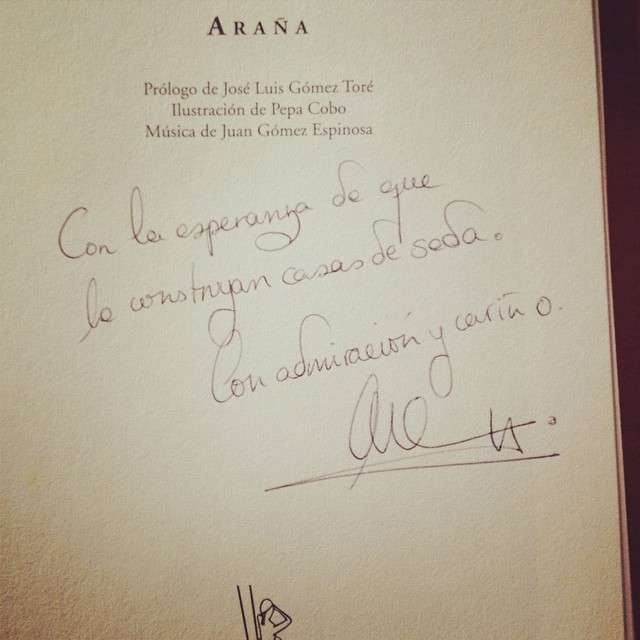 ARAÑA
Prólogo de José Luis Gómez Toré
Ilustración de Pepa Cobo
Música de Juan Gómez Espinosa
Con la esperanza de que
le construyan casas de seda.
Con admiración y cariño.